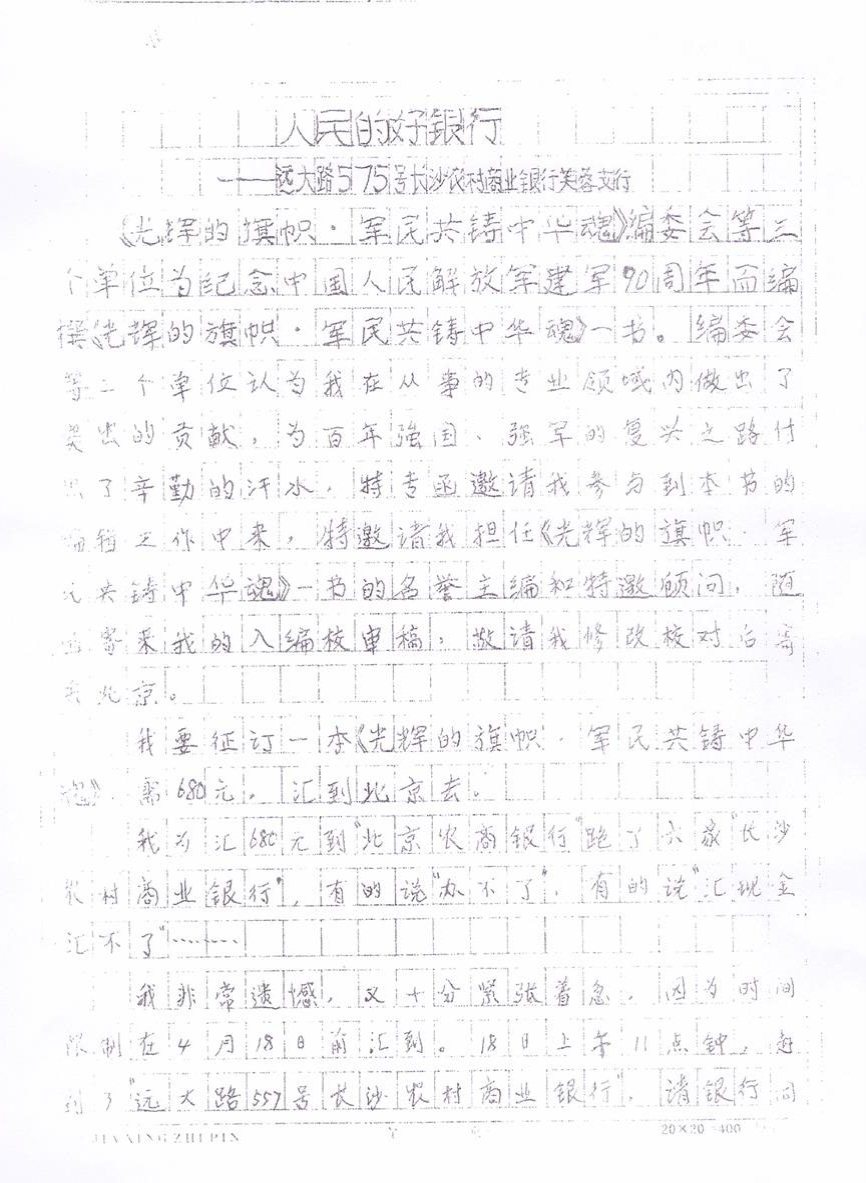 人民的好银行
——远大路575号长沙农村商业银行芙蓉支行
《光辉的旗帜·军民共铸中华魂》编委会等三
个单位为纪念中国人民解放军建军90周年而编
撰《光辉的旗帜·军民共铸中华魂》一书。编委会
等三个单位认为我在从事的专业领域内做出了
突出的贡献，为百年强国、强军的复兴之路付
出了辛勤的汗水，特专函邀请我参与到本书的
编辑工作中来，特邀请我担任《光辉的旗帜·军
民共铸中华魂》一书的名誉主编和特邀顾问，随
寄来我的入编校审稿，敬请我修改校对后寄
北京。
我要征订一本《光辉的旗帜·军民共铸中华
魂》，需680元，汇到北京去。
我为汇680元到“北京农商银行”跑了六家“长沙
农村商业银行”，有的说“办不了”，有的说“汇现金
汇不了”……
我非常遗憾，又十分紧张着急，因为时间
限制在4月18日前汇到。18日上午11点钟，
到了“远大路557号长沙农村商业银行”，请银行同
JIAXING ZHIPIN
20×20=400